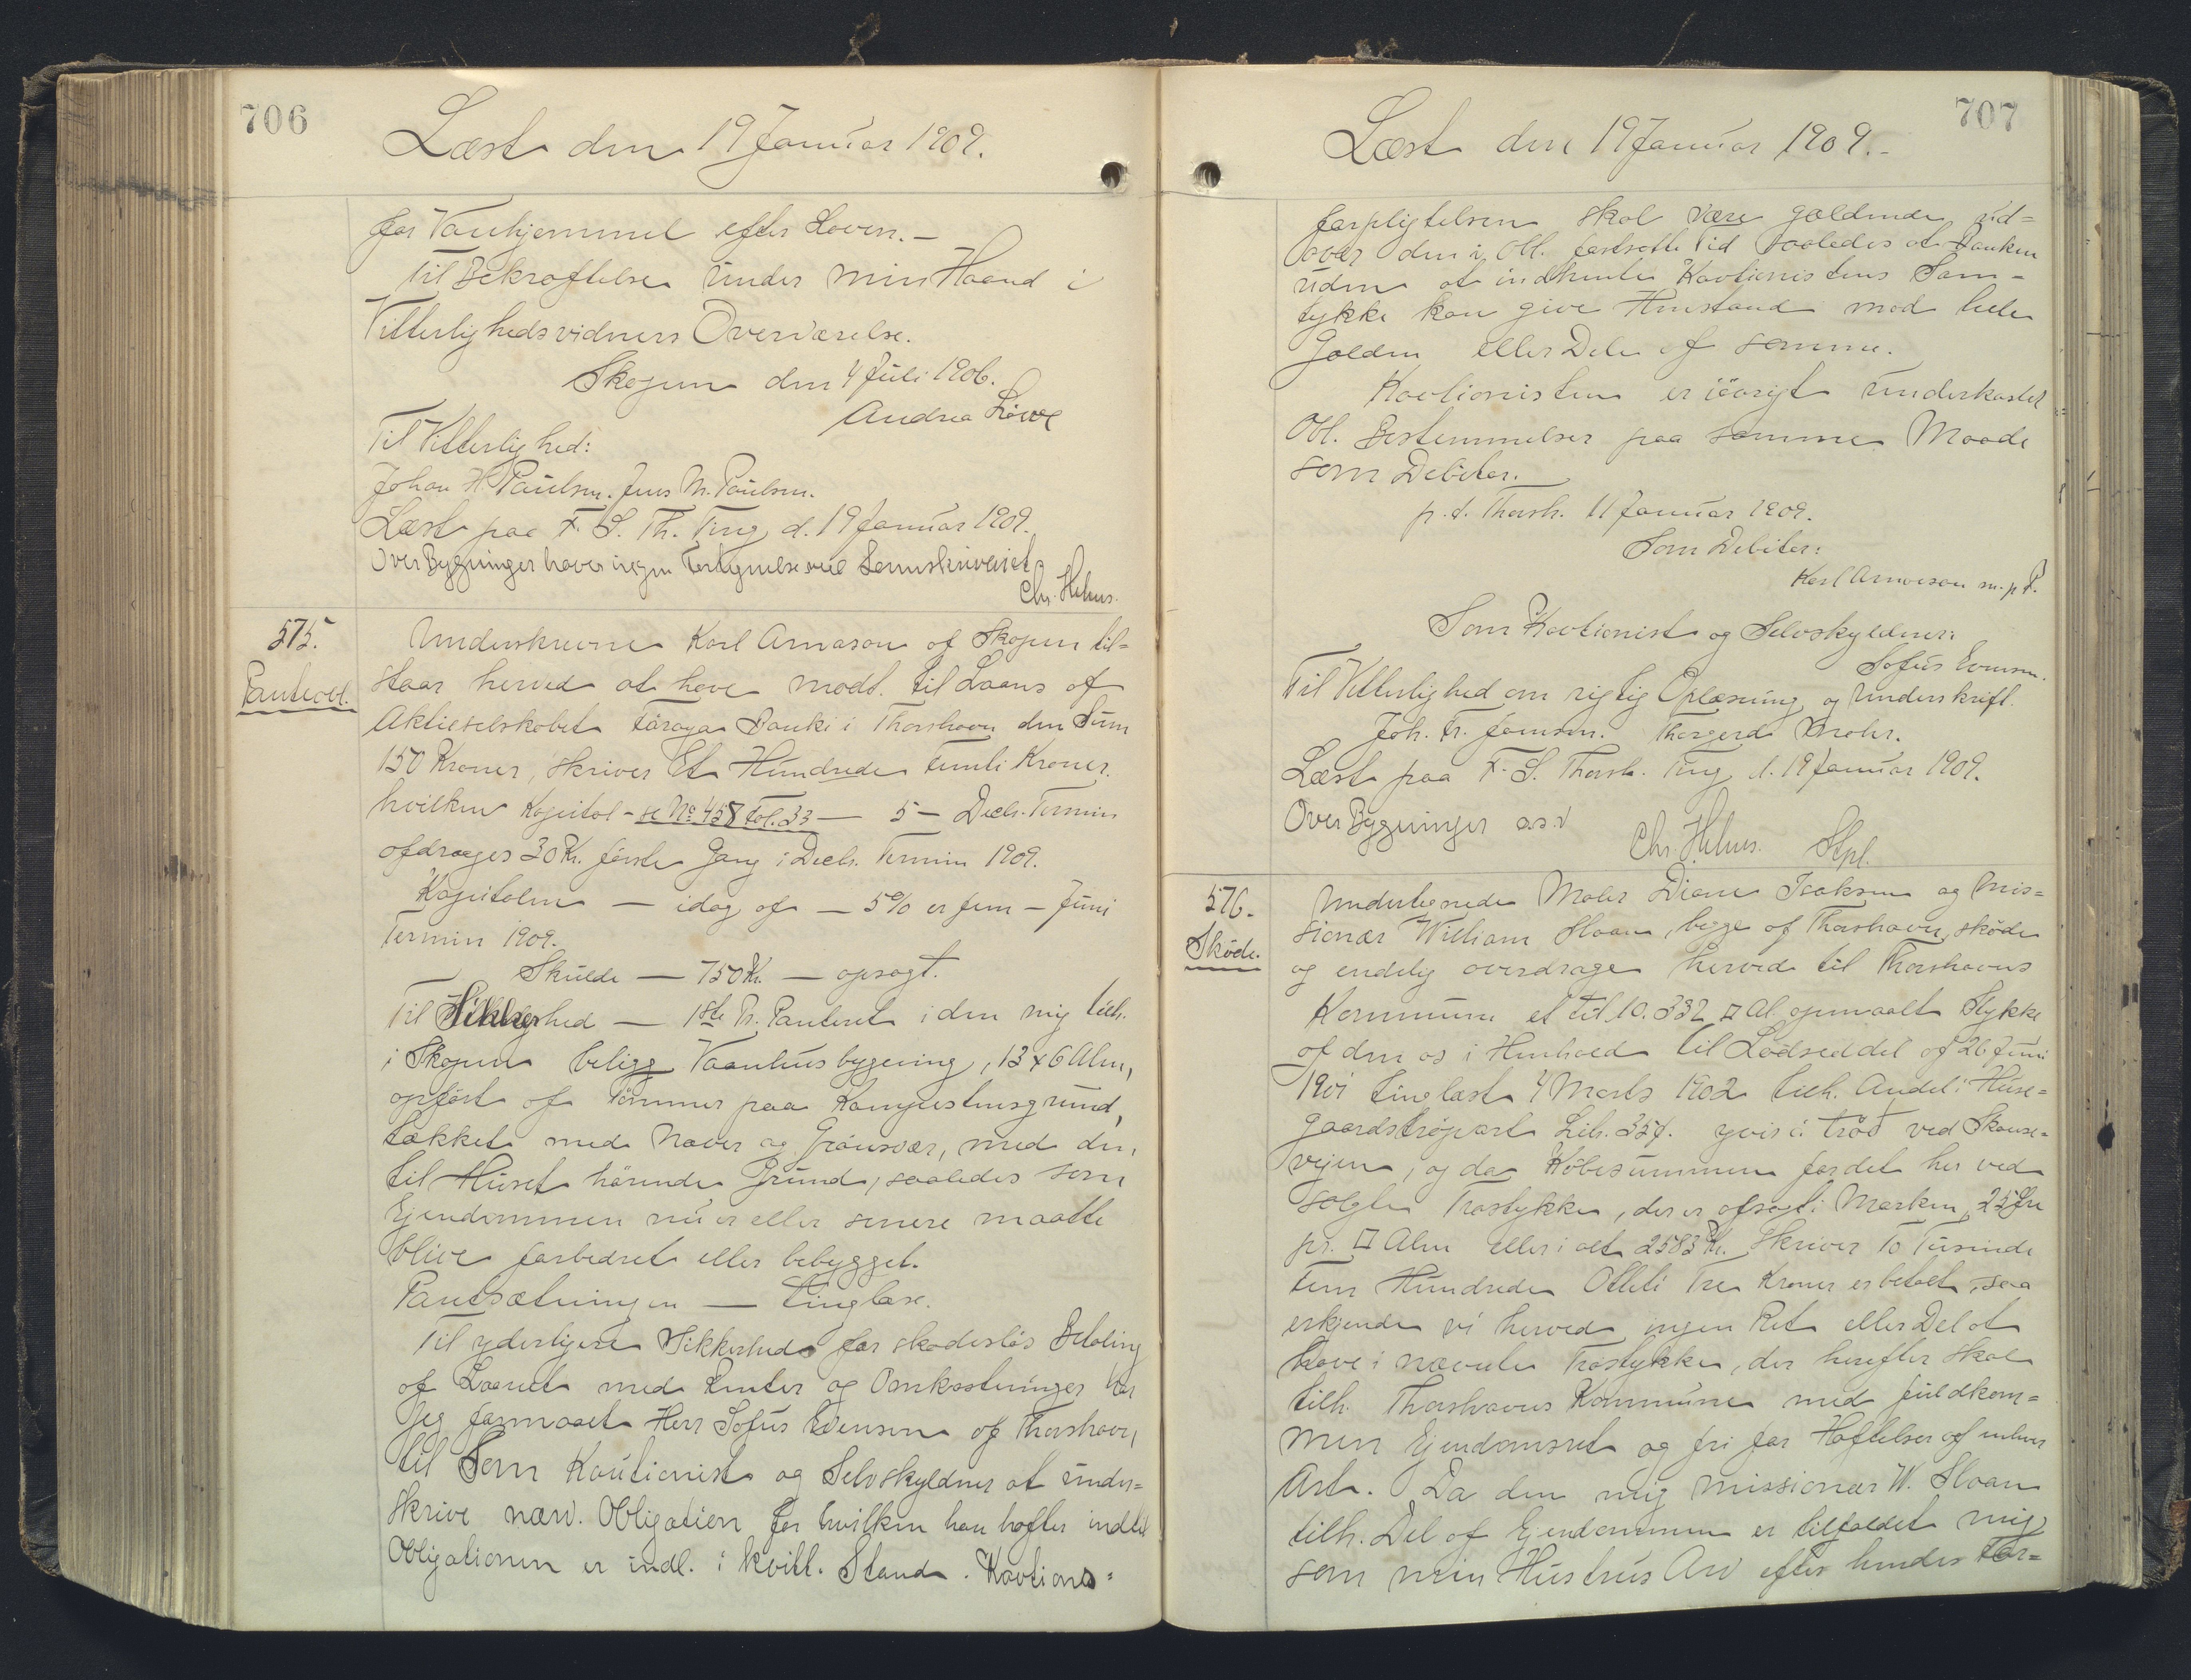 706
Læst den 19 Januar 1909.
for Vanhjemmel efter Loven. –
Til Bekræftelse under min Haand i
Vitterlighedsvidners Overværelse.
Skopun den 4 Juli 1906.
Andrea Löwe
Til Vitterlighed:
Johan H. Paulsen. Jens M. Paulsen.
Læst paa F. S. Th. Ting d. 19 Januar 1909.
Over Bygninger haves ingen Forsynelse ved Sorenskriveriet.
Chr. Helms.
575.
Panteobl.
Underskrevne Karl Arnason af Skopun til=
staar herved at have modt. til Laans af
Aktieselskabet Föroya Banki i Thorshavn den Sum
150 Kroner, skriver Et Hundrede Femti Kroner.
hvilken Kapital – se No 458 Fol. 33 – 5 – Decbr. Termin
afdrages 30 Kr. første Gang i Decbr. Termin 1909.
Kapitalen – idag af – 5% er fem – Juni
Termin 1909.
Skulde – 750 Kr. – opsagt.
Til Sikkerhed – 1ste Pr. Panteret i den mig tilh.
i Skopun beligg Vaanhusbygning, 13 x 6 Alen,
opført af Tömmer paa Kampestensgrund,
tækket med Næver og Grönsvær, med den
til Huset hörende Grund, saaledes som
Ejendommen nu er eller senere maatte
blive forbedret eller bebygget.
Pantsætningen – tinglæse.
Til yderligere Sikkerhed for skadeslös Betaling
af Laanet med Renter og Omkostninger har
jeg formaaet Herr Sofus Evensen af Thorshavn,
til Som Kautionist og Selvskyldner at under=
skrive nærv. Obligation for hvilken han hæfter indtil
Obligationen er indl. i kvitt. Stand. Kautions=
707
Læst den 19 Januar 1909. –
forpligtelsen skal være gældende ud=
over den i Obl. fastsatte Tid saaledes at Banken
uden at indhente Kautionistens Sam=
tykke kan give Henstand med hele
Gælden eller Dele af samme.
Kautionisten er iövrigt underkastet
Obl. Bestemmelser paa samme Maade
som Debitor.
p. t. Thorsh. 11 Januar 1909.
Som Debitor:
Karl Arnason m. p. P.
Som Kautionist og Selvskyldner:
Sofus Evensen.
Til Vitterlighed om rigtig Oplæsning og Underskrift.
Joh. Fr. Joensen. Thorgerd Mohr.
Læst paa F. S. Thorsh. Ting d. 19 Januar 1909.
Over Bygninger o. s. v
Chr. Helms. Stpl.
576.
Sköde.
Undertegnede Maler Diane Isaksen og Mis=
sionær William Sloan, begge af Thorshavn, sköde
og endelig overdrage herved til Thorshavns
Kommune et til 10.332 □ Al. opmaalt Stykke
af den os i Henhold til Lodseddel af 26 Juni
1901 tinglæst 4 Marts 1902 tilh. Andel i Huse=
gaardströpart Litr. 357. yvir i Tröd ved Skanse=
vejen, og da Köbesummen for det her ved
solgte Trastykke, der er afsagt i Marken, 25 Øre
pr. □ Alen eller i alt 2583 Kr. skriver To Tusinde
Fem Hundrede Otteti Tre Kroner er betalt, saa
erkjende vi herved ingen Ret eller Del at
have i nævnte Trastykke, der herefter skal
tilh. Thorshavns Kommune med fuldkom=
men Ejendomsret og fri for Hæftelser af enhver
Art. Da den mig missionær W. Sloan
tilh. Del af Ejendommen er tilfaldet mig
som min Hustrus Arv efter hendes For=